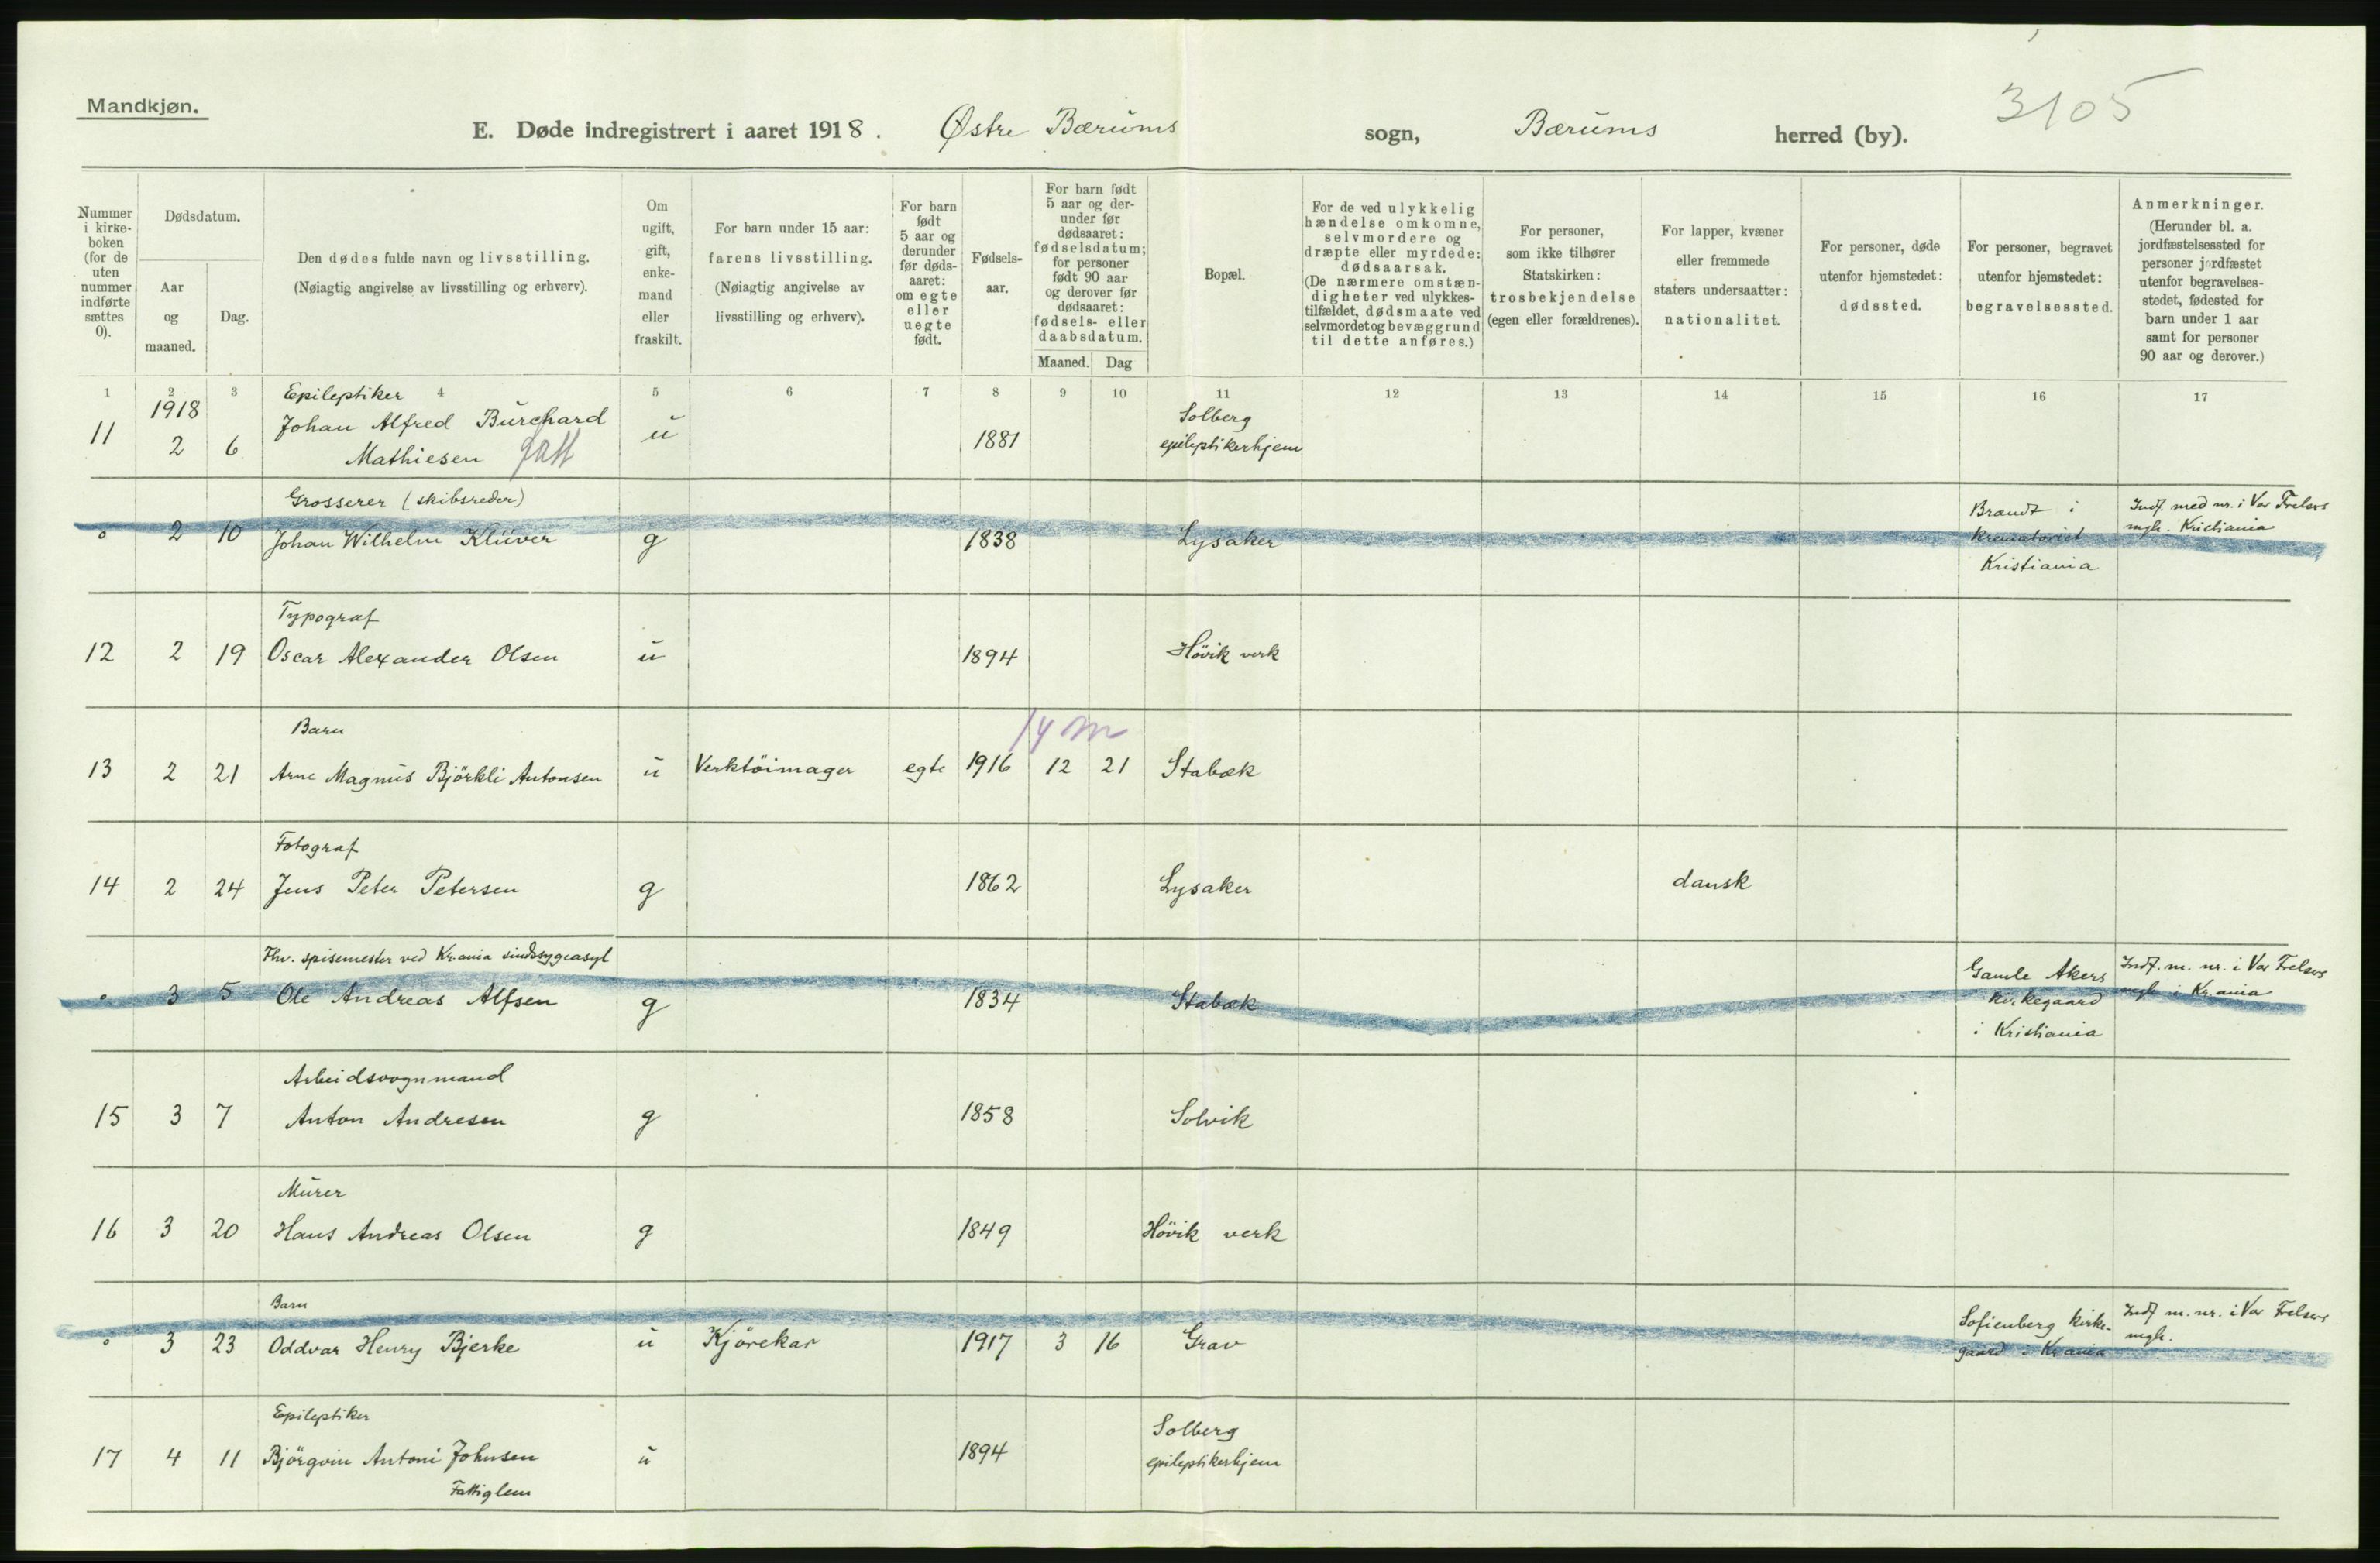 Mandkjøn.
3105
E. Døde indregistrert i aaret 1918. Østre Bærums sogn, Bærums herred (by).
Nummer i kirke-boken (for de uten nummer indførte sættes 0).
Dødsdatum.
Aar og maaned.
Dag.
Den dødes fulde navn og livsstilling.
(Nøiagtig angivelse av livsstilling og erhverv).
Om ugift, gift, enke-mand eller fraskilt.
For barn under 15 aar: farens livsstilling. (Nøiagtig angivelse av livsstilling og erhverv).
For barn født 5 aar og derunder før døds-aaret: om egte eller uegte født.
Fødsels-aar.
For barn født 5 aar og der-under før dødsaaret: fødselsdatum; for personer født 90 aar og derover før dødsaaret: fødsels- eller daabsdatum.
Maaned. Dag
Bopæl.
For de ved ulykkelig hændelse omkomne, selvmordere og dræpte eller myrdede: dødsaarsak. (De nærmere omstæn-digheter ved ulykkes-tilfældet, dødsmaate ved selvmordet og bevæggrund til dette anføres.)
For personer, som ikke tilhører Statskirken: trosbekjendelse (egen eller forældrenes).
For lapper, kvæner eller fremmede staters undersaatter: nationalitet.
For personer, døde utenfor hjemstedet: dødssted.
For personer, begravet utenfor hjemstedet: begravelsessted.
Anmerkninger. (Herunder bl. a. jordfæstelsessted for personer jordfæstet utenfor begravelses-stedet, fødested for barn under 1 aar samt for personer 90 aar og derover.)
1 2 3 4 5 6 7 8 9 10 11 12 13 14 15 16 17
1918 Epileptiker Solberg
11 2 6 Johan Alfred Burchard u 1881 epileptikerhjem
Mathiesen
Grosserer (skibsreder) Brændt i Indf. med nr. i Vor Frelsers
0 2 10 Johan Wilhelm Klüver g 1838 Lysaker krematoriet mgh. Kristiania
Kristiania
Typograf
12 2 19 Oscar Alexander Olsen u 1894 Hövik verk
Barn 14 m
13 2 21 Arne Magnus Björkli Antonsen u Verktöimager egte 1916 12 21 Stabæk
Fotograf
14 2 24 Jens Peter Petersen g 1862 Lysaker dansk
Fhv. spisemester ved Kr.ania sindssygeasyl Gamle Akers Indf. m. nr. i Vor Frelsers
0 3 5 Ole Andreas Alfsen g 1834 Stabæk kirkegaard mgh i Kr.ania
i Kristiania
Arbeidsvognmand
15 3 7 Anton Andresen g 1858 Solvik
Murer
16 3 20 Hans Andreas Olsen g 1849 Hövik verk
Barn Sofienberg kirke- Indf m. nr. i Vor Frelsers
0 3 23 Oddvar Henry Bjerke u Kjörekar 1917 3 16 Grav gaard i Kr.ania mgh.
Epileptiker Solberg
17 4 11 Björgvin Antoni Johnsen u 1894 epileptikerhjem
Fattiglem